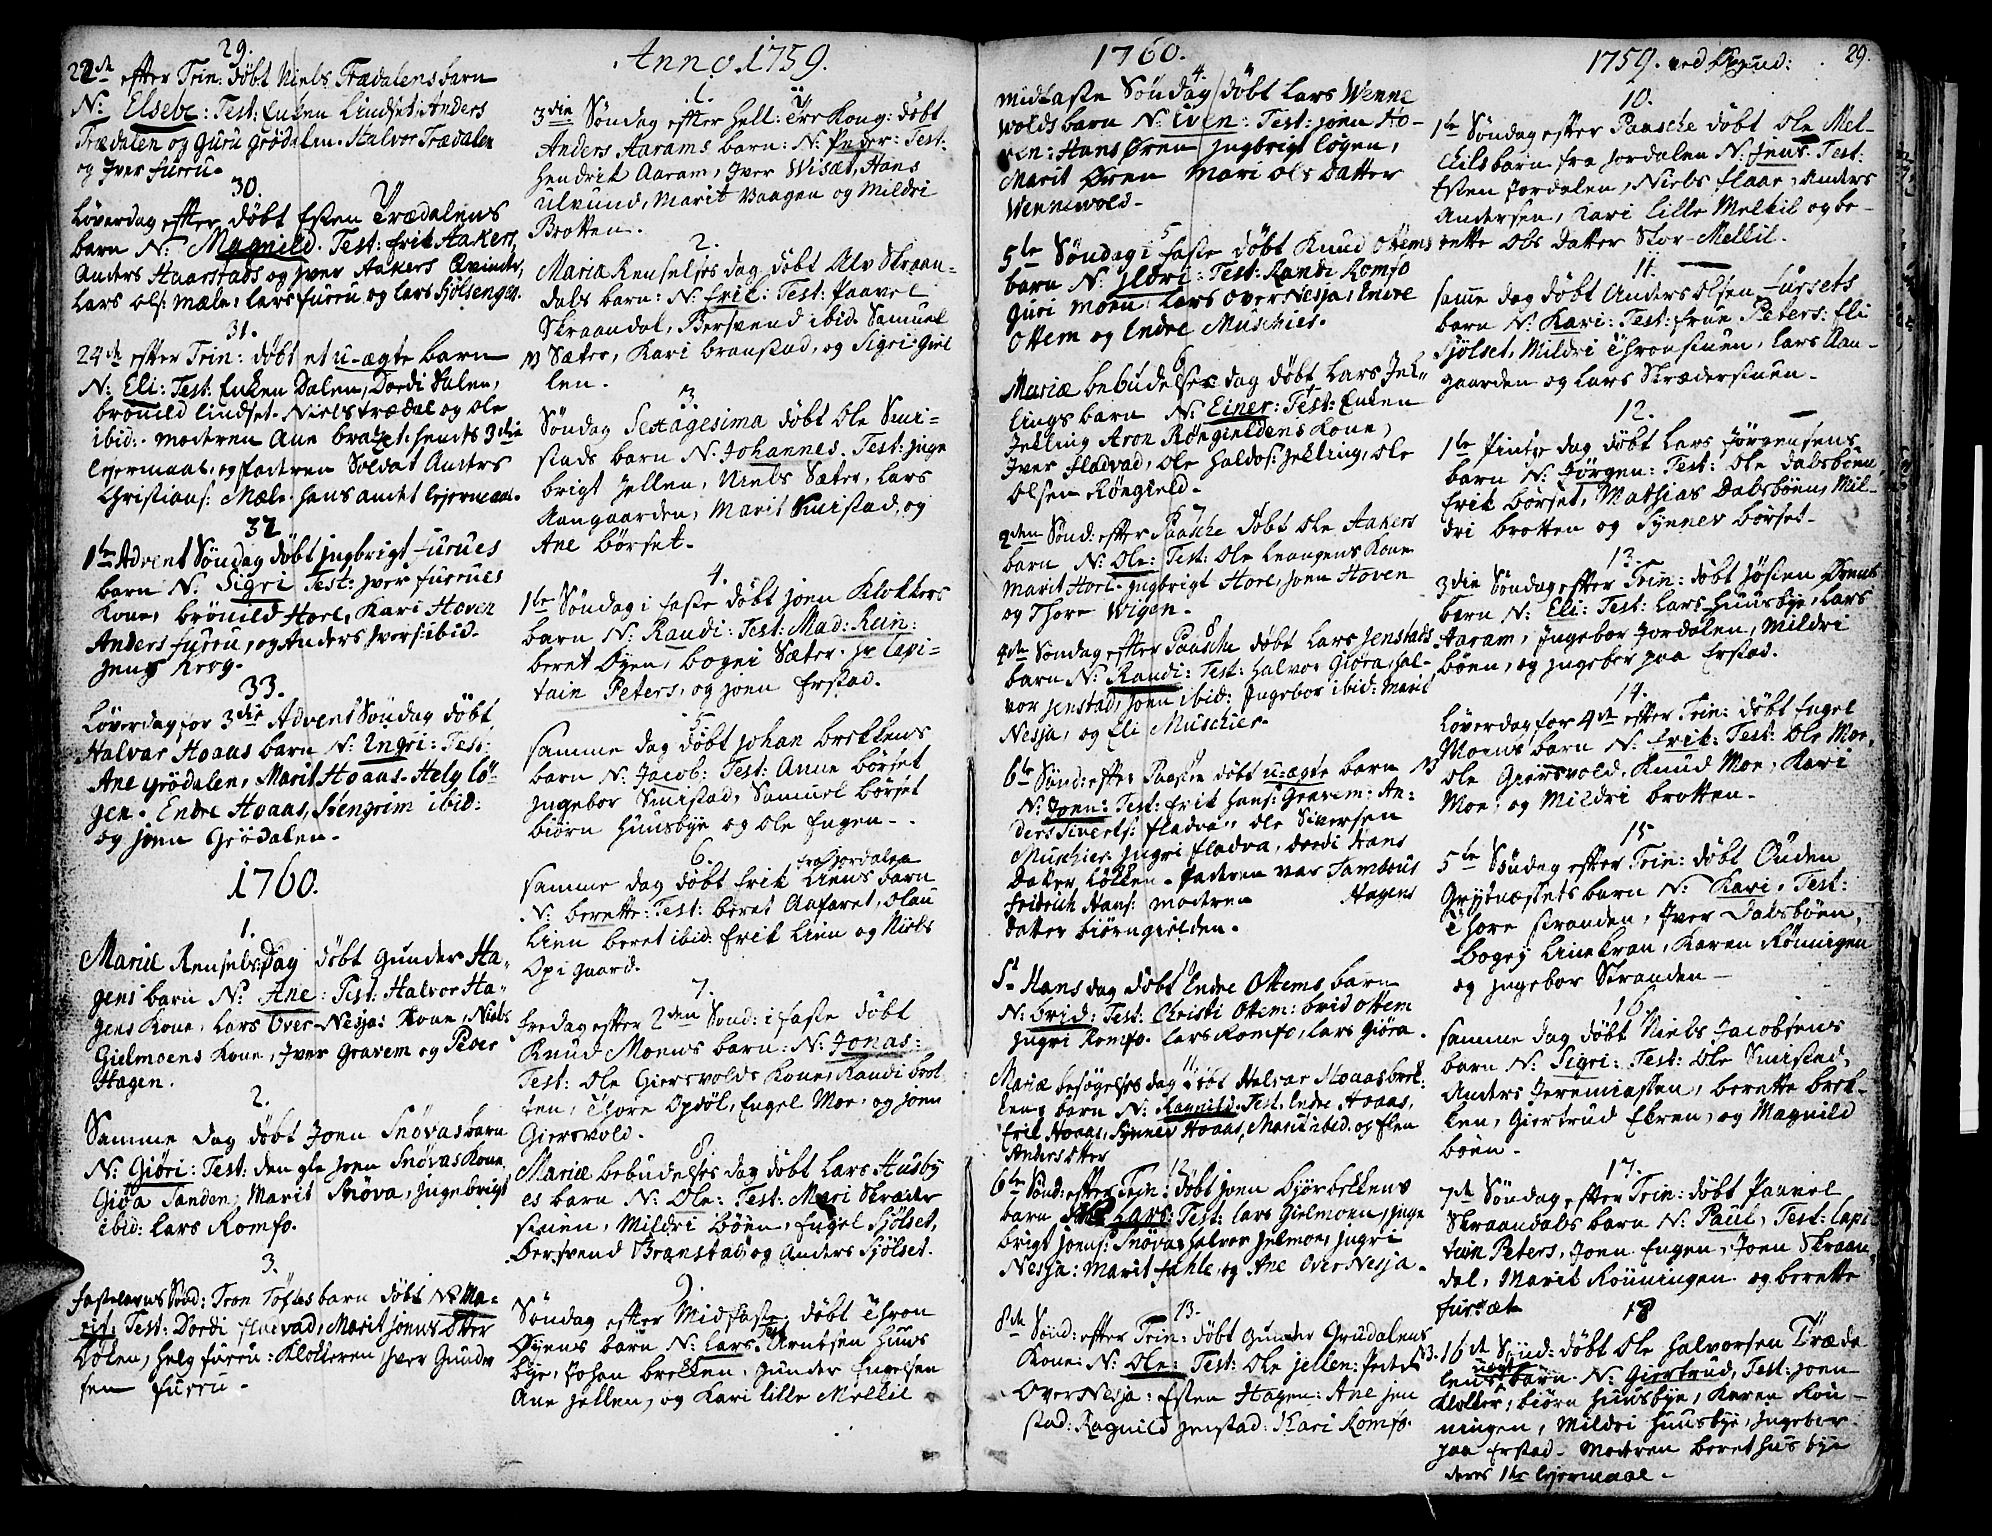 29.
22de efter Trin: döbt Niels Trædalens barn
N: Elsebe: Test: Enken Lindset, Anders
Trædalen og Guru Grödalen. Halvor Trædalen
og Iver Furru.
30.
Löverdag efter döbt Esten Trædalens
barn N: Magnild. Test: Erik Aakers,
Anders Haarstads og Iver Aakers Qvinder,
Lars Ols: Mæle, Lars Furru og Lars Siölsenget.
31.
24de efter Trin: döbt et u-ægte barn
N: Eli: Test: Enken Dalen, Dordi Dalen,
Brönild Lindset. Niels Trædal og Ole
ibid:. Modren Ane Bratset: hendes 3die
lejermaal, og fadren Soldat Anders
Christians: Mæle hans andet lejermaal.
32
1te Advent Söndag döbt Ingbrigt Furrues
barn N: Sigri Test: Iver Furrues
Kone, Brönild Hoel, Kari Hoven
Anders Furru, og Anders Ivers: ibid.
Jens Krog.
33.
Löverdag for 3die Advent Söndag döbt
Halvar Hoaas barn N: Ingri: Test:
Ane Grödalen, Marit Hoaas. Helg Lö-
gen. Endre Hoaas, Svengrim ibid:
og Joen Grödalen.
1760.
1.
Mariæ Renselses Dag döbt Gunder Ha-
gens barn N: Ane: Test: Halvor Ha-
gens Kone, Lars Over-Nesjas Kone, Niels
Gielmoens Kone, Iver Gravem og Peder
Hagen.
2.
Samme dag döbt Joen Snövas barn
N: Giöri: Test: den gle Joen Snövas Kone
Giöa Sanden, Marit Snöva, Ingebrigt
ibid: Lars Romfo.
3.
Fastelavns Sönd: Tron Töftes barn döbt N: Ma-
rit: Test: Dordi Fladvad, Marit Joens Dtter
Löken, Helg Furru: Klokkeren Iver Gunder
sen Furru.
Anno. 1759.
1.
3die Söndag efter Hell: Tre Kong: döbt
Anders Aarams barn: N: Peder: Test:
Hendrik Aaram, Iver Wisæt, Hans
Ulvund, Marit Vaagen og Mildri
Brotten.
2.
Mariæ Renselses dag döbt Alv Skraan-
dals barn: N: Erik: Test: Paavel
Skraandal, Bersvend ibid. Samuel
Sæter, Kari Branstad, og Sigri Giel
len.
3
Söndag Sexagesima döbt Ole Smi-
stads barn N. Johannes. Test: Inge
brigt Jellen, Niels Sæter, Lars
Aangaarden, Marit Smistad, og
Ane Börset.
4.
1te Söndag i Faste döbt Joen Klokkers
barn N: Randi: Test: Mad: Rein:
beret Öyen, Bogni Sæter. Hr Capi-
tain Peters, og Joen Erstad.
5
Samme dag döbt Johan Brekkens
barn N: Jacob: Test: Anne Börset
Ingebor Smistad, Samuel Börset
Biörn Huusbye og Ole Engen.
6.
fra Jordalen
Samme dag döbt Erik Liens barn
N: Berette: Test: Beret Aafaret, Olau
Lien Beret ibid: Erik Lien og Niels
Opigaard.
7.
Fredag efter 2den Sönd: i Faste döbt
Knud Moens barn: N: Jonas:
Test: Ole Giersvolds Kone, Randi Brot
ten, Thore Opdöl, Engel Moe, og Joen
Giersvold.
8
Mariæ Bebudelses dag döbt Lars Husby
es barn N: Ole: Test: Mari Skræder
stuen, Mildri Böen, Engel Siölset,
Bersvend Branstad, og Anders Siölset.
9
Söndag efter Midfaste döbt Thron
Öyens barn N: Lars. Test: Arntsen Huus
bye, Johan Brekken, Gunder Engelsen
Ane Jellen, og Kari Lille Melkil
1760.
4.
Midfaste Söndag döbt Lars Wenne
volds barn N: Even: Test: Joen Ho-
ven: Hans Ören Ingbrigt Lögen,
Marit Ören Mari Ols Datter
Wennevold.
5
5te Söndag i Faste döbt Knud Ottems
barn N: Ildri: Test: Randi Romfo
Guri Moen: Lars Over Nesja, Endre
Ottem og Endre Muschies.
6
Mariæ bebudelses dag döbt Lars Jek-
lings barn N: Einer: Test: Enken
Jekling Aron Röngieldens Kone,
Iver Fladvad, Ole Haldos: Jekling, Ole
Olsen Röngield.
7
2den Sönd: efter Paasche döbt Ole Aakers
barn N: Ole: Test: Ole Leangens Kone
Marit Hoel. Ingbrigt Hoel, Joen Hoven
og Thore Wigen.
8
4de Söndag efter Paasche döbt Lars Jenstads
barn N: Randi: Test: Halvor Giöra, Hal-
vor Jenstad, Joen ibid: Ingebor ibid: Marit
Nesja, og Eli Muschies.
6te Sönd: efter Paaske döbt u:ægte barn
N: Joen: Test: Erik Hans: Gravem: An-
ders Siverts: Fladva, Ole Siversen
Muschies Ingri Fladva, Dordi Hans
Datter Lökken. Fadren var Tambour
Fridrich Hans: Modren Hagens
datter Biörngielden.
10
St Hans dag döbt Endre Ottems barn
N: Brid: Test: Christi Ottem: Brid Ottem
Ingri Romfo. Lars Romfo, Lars Giöra.
11.
Mariæ besögelses dag döbt Halvar Hoaas brek-
kens barn N: Ragnild. Test: Endre Hoaas,
Erik Hoaas, Synnev Hoaas, Marit ibid. og Elen
Anders Dtter
12
6te Sönd: efter Trin: döbt Joen Biörbekkens
barn Lars: Test: Lars Gielmoen, Inge
brigt Joens: Snöva, Halvor Jelmoe, Ingri
Nesja: Marit Fahle, og Ane OverNesja.
13.
8de Sönd: efter Trin: döbt Gunder Grudalens
Kone: N: Ole: Test: Ole Jellen: Peder
OverNesja: Esten Hagen: Ane Jen
stad: Ragnild Jenstad: Kari Romfo.
1759. ved Grund: 29.
10.
1te Söndag efter Paasche döbt Ole Mel-
kils barn fra Jordalen N: Jens: Test:
Esten Jordalen, Niels Flaae, Anders
Andersen, Kari Lille Melkil og Be-
rette Ols Datter Stor-Melkil.
11.
Samme dag döbt Anders Olsen Fursets
barn N: Kari: Test: Frue Peters: Eli
Siölset, Mildri Thronstuen, Lars Aan-
gaarden og Lars Skræderstuen.
12.
1te Pintze dag döbt Lars Jörgensens
barn N: Jörgen: Test: Ole Dalsböen,
Erik Börset, Mathias Dalsböen, Mil-
dri Brotten og Synnev Börset.
13.
3die Söndag efter Trin: döbt Jösten Örens
barn N: Eli: Test: Lars Huusbye, Lars
Aaram, Ingebor Jordalen, Mildri
Böen, og Ingebor paa Erstad.
14.
Löverdag for 4de efter Trin: döbt Engel
Moens barn N: Erik: Test: Ole Moe,
Ole Giersvold, Knud Moe, Kari
Moe, og Mildri Brotten.
15
5te Söndag efter Trin: döbt Ouden
Grytnæssets barn N: Kari, Test:
Thore Stranden, Iver Dalsböen,
Bogej Linekran, Karen Rönnigen
og Ingebor Stranden
16.
Samme dag döbt Niels Jacobsens
barn N: Sigri: Test: Ole Smistad,
Anders Jeremiassen, Berette Brek-
ken, Giertrud Ekren, og Magnild
Böen.
17.
7de Söndag efter Trin: döbt Paavel
Skraandals barn N: Paul, Test: Capi
tain Peters, Joen Engen, Joen Skraan
dal, Marit Rönningen og Berette
Fursæt
18
16de Sönd: döbt Ole Halvorsen Træda
lens uægt barn N: Giertrud, Test: Joen
Klokker, Biörn Huusbye, Karen Rön-
ningen, Mildri Huusbye, Ingebor
paa Erstad. Modren Beret Husbye
deres 1te lejermaal.